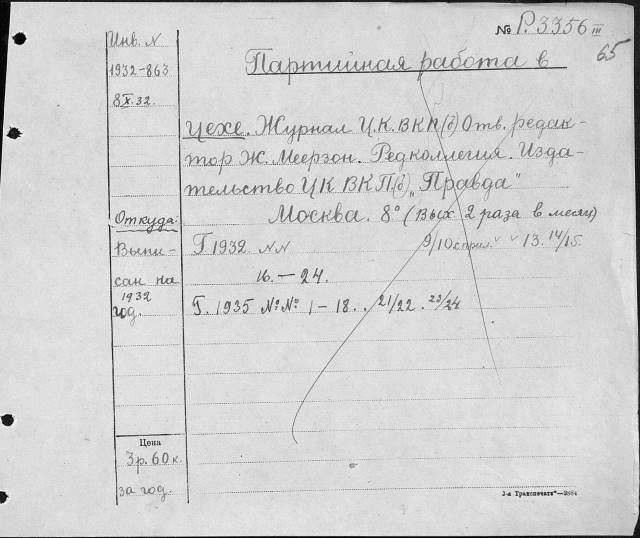 № Р.3356 III
65
Инв. N
1932-863
8 X. 32.
Партийная работа в
цехе. Журнал Ц.К. ВКП(б) Отв. редак-
тор Ж. Меерзон. Редколлегия. Изда-
тельство ЦК ВКП(б) „Правда"
Москва. 8° (Вых 2 раза в месяц)
Откуда:
Выпи-
сан на
1932
год.
Г 1932 NN 9/10 с прил. 13. 14/15.
16. — 24.
Г. 1935 №№ 1-18.. 21/22. 23/24
Цена
3 р. 60 к.
за год.
3-я Транспечать"—3984